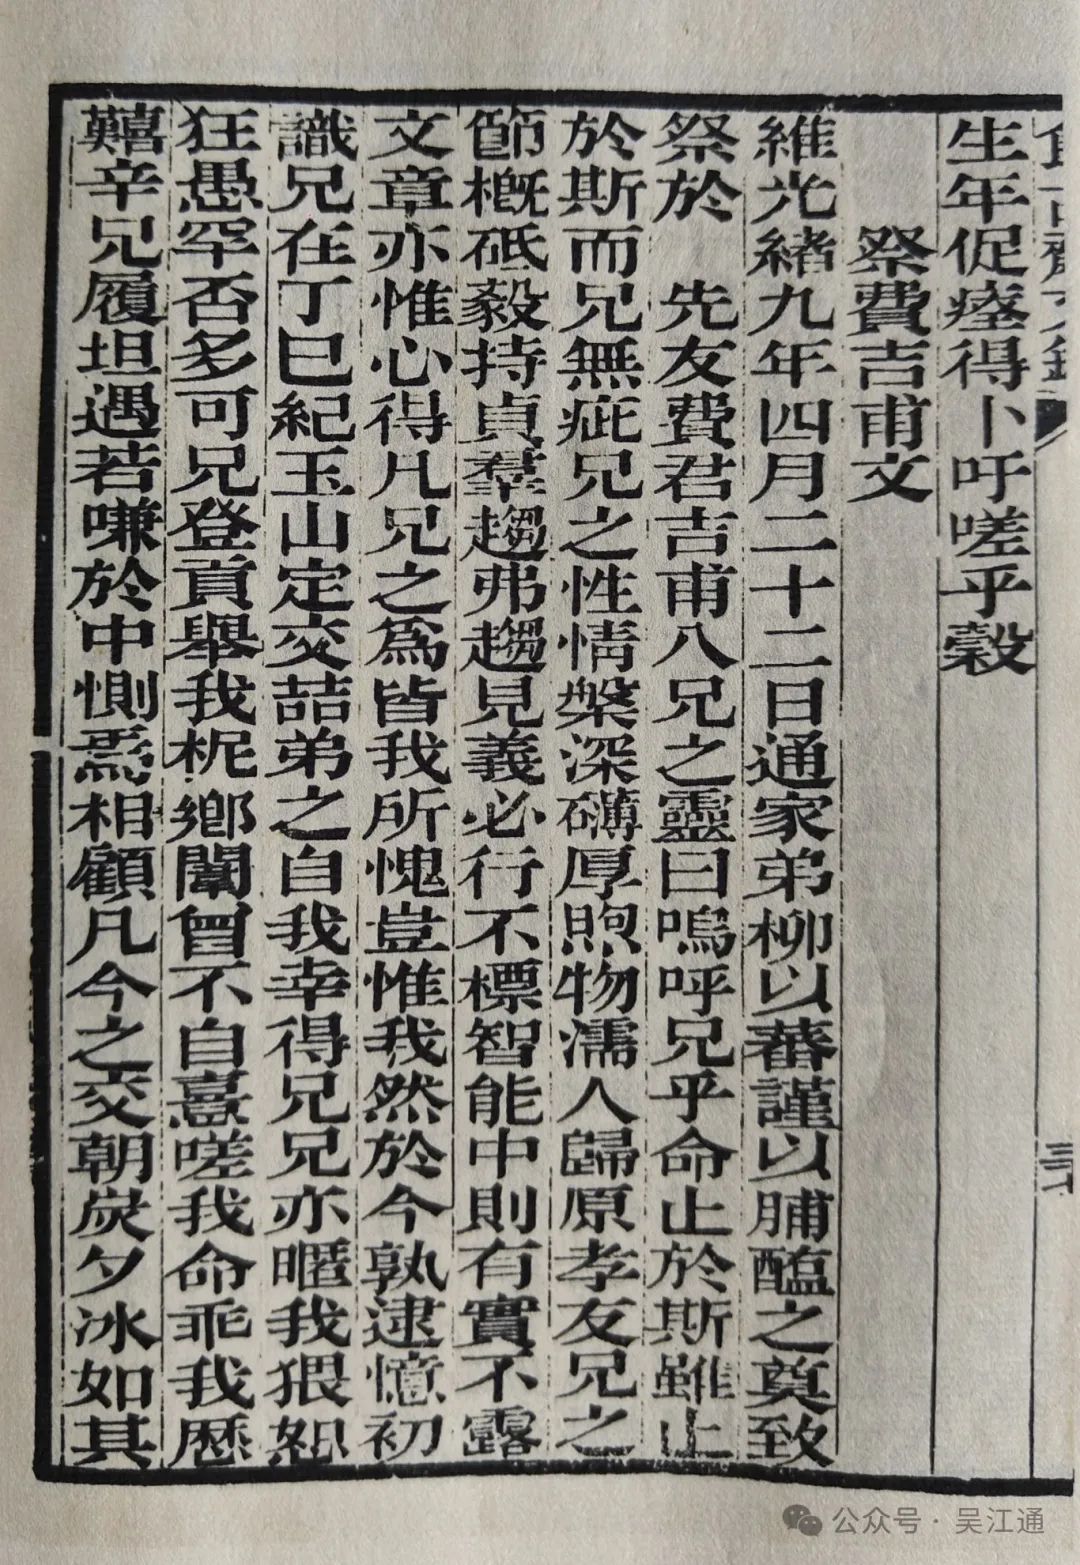 生年促瘞得卜吁嗟乎穀
祭費吉甫文
維光緒九年四月二十二日通家弟柳以蕃謹以脯醢之奠致
祭於　先友費君吉甫八兄之靈曰嗚呼兄乎命止於斯雖止
於斯而兄無疵兄之性情槃深礴厚煦物濡人歸原孝友兄之
節概砥毅持貞羣趨弗趨見義必行不標智能中則有實不露
文章亦惟心得凡兄之爲皆我所愧豈惟我然於今孰逮憶初
識兄在丁巳紀玉山定交喆弟之自我幸得兄兄亦暱我猥恕
狂愚罕否多可兄登貢舉我柅鄉闈曾不自憙嗟我命乖我歷
囏辛兄履坦遇若嗛於中惻焉相顧凡今之交朝炭夕冰如其
公众号·吴江通